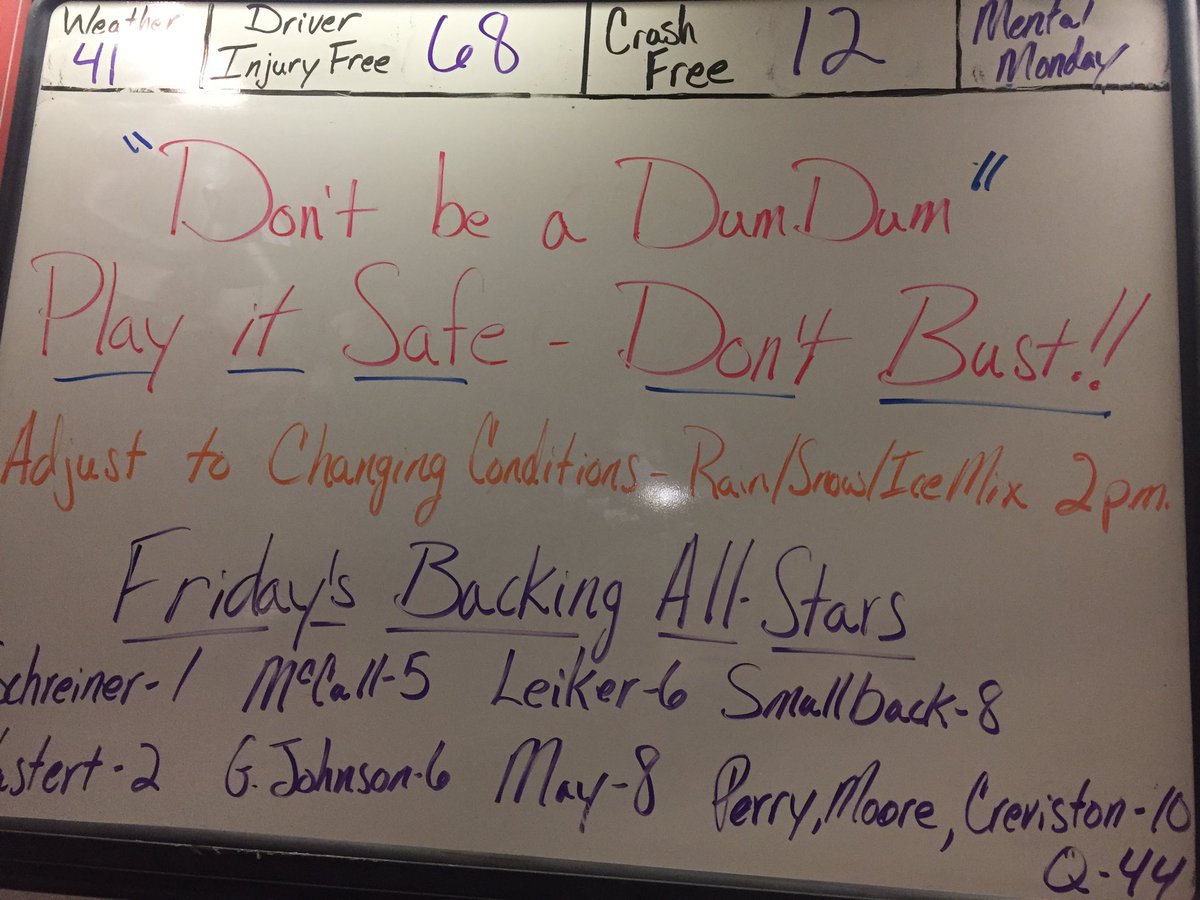 Weather 41
Driver Injury Free 68
Crash Free 12
Mental Monday
"Don't be a Dum.Dum"
Play it Safe - Don't Bust!!
Adjust to Changing Conditions - Rain/Snow/Ice Mix 2pm.
Friday's Backing All-Stars
Schreiner-1 McCall-5 Leiker-6 Smallback-8
stert-2 G. Johnson-6 May-8 Perry, Moore, Creviston-10
Q-44